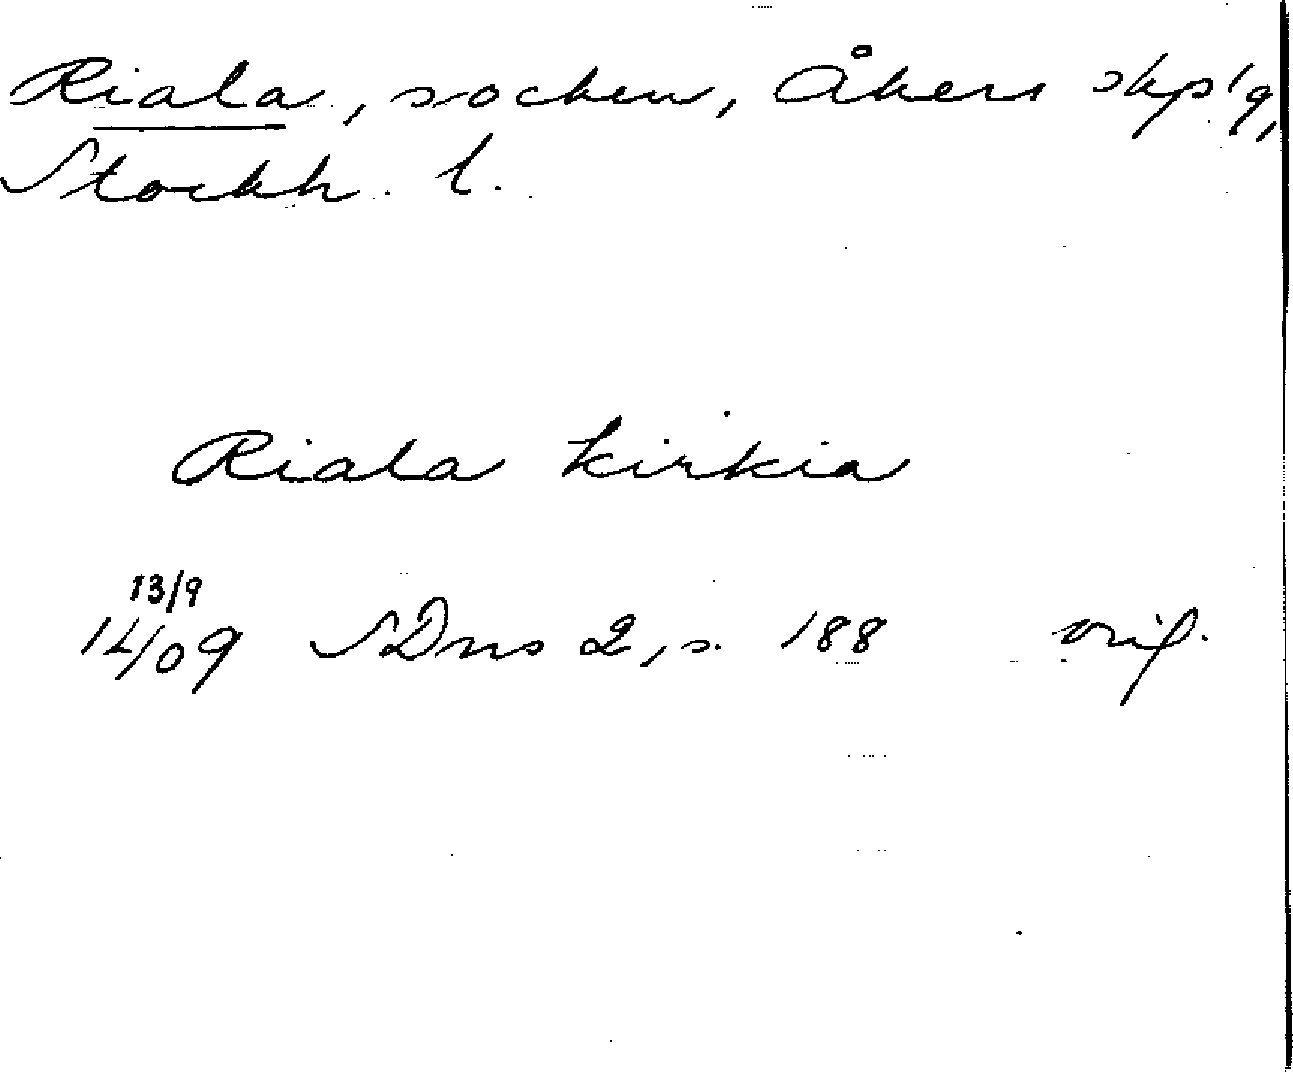 Riala, socken, Åkers skplg,
Stockh. l.
Riala kirkia
13/9
14/09 SDns 2, s. 188 orig.